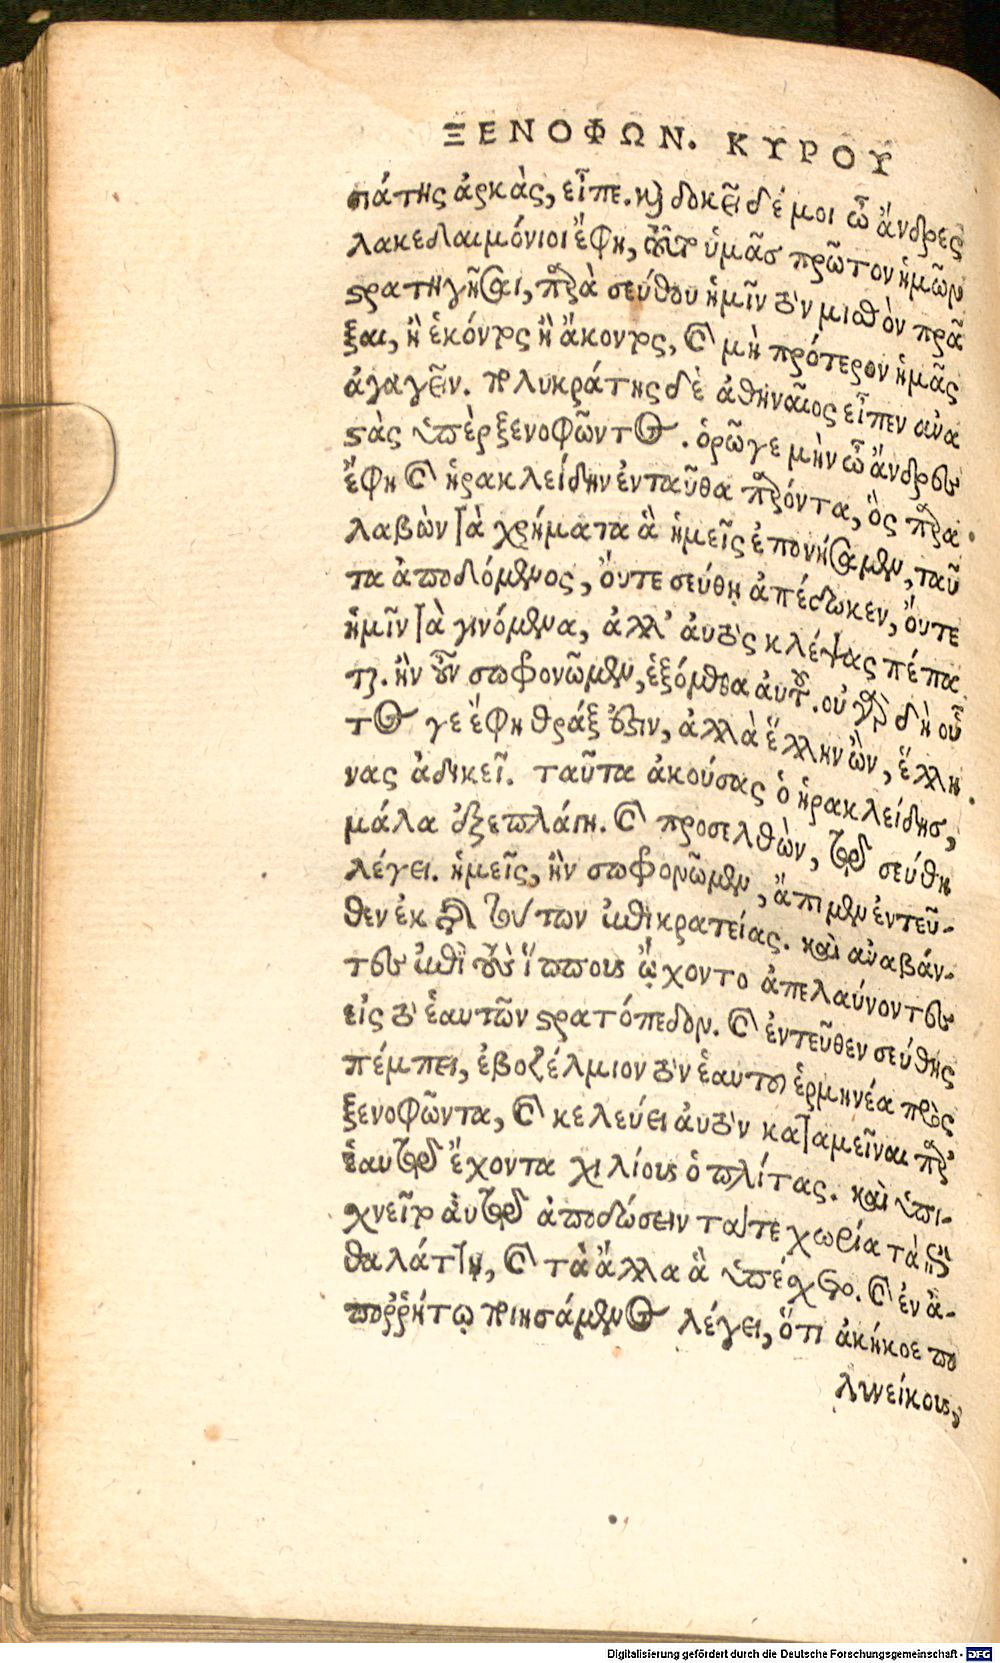 ΞΕΝΟΦΩΝ. ΚΥΡΟΥ
πάτης ἀρκὰς, εἶπε. καὶ δοκεῖ δέ μοι ὦ ἄνδρες
λακεδαιμόνιοι ἔφη, ὑμᾶσ πρῶτον ἡμῶν
στρατηγῆσαι, παρὰ σεύθου ἡμῖν τὸν μισθὸν πρᾶ
ξαι, ἢ ἑκόντος ἢ ἄκοντος, καὶ μὴ πρότερον ἡμᾶς
ἀγαγεῖν. πολυκράτης δὲ ἀθηναῖος εἶπεν ἀνα
στὰς ὑπὲρ ξενοφῶντος. ὁρῶ γε μὴν ὦ ἄνδρες
ἔφη καὶ ἡρακλείδην ἐνταῦθα παρόντα, ὃς παρα
λαβὼν τὰ χρήματα ἃ ἡμεῖς ἐπονήσαμεν, ταῦ
τα ἀποδόμενος, οὔτε σεύθῃ ἀπέδωκεν, οὔτε
ἡμῖν τὰ γινόμενα, ἀλλ' αὐτὸς κλέψας πέπα
ται. ἢν οὖν σωφρονῶμεν, ἑξόμεθα αὐτοῦ. οὐ γὰρ δὴ οὗ
τος γε ἔφη θράξ ἐστιν, ἀλλὰ ἕλλην ὢν, ἕλλη
νας ἀδικεῖ. ταῦτα ἀκούσας ὁ ἡρακλείδησ,
μάλα ἐξεπλάγη. καὶ προσελθὼν, τῷ σεύθῃ
λέγει. ἡμεῖς, ἢν σωφρονῶμεν, ἄπιμεν ἐντεῦ-
θεν ἐκ τῆς τούτων ἐπικρατείας. καὶ ἀναβάν-
τες ἐπὶ τοὺς ἵππους ᾤχοντο ἀπελαύνοντες
εἰς τὸ ἑαυτῶν στρατόπεδον. καὶ ἐντεῦθεν σεύθης
πέμπει, ἐβοζέλμιον τὸν ἑαυτοῦ ἑρμηνέα πρὸς
ξενοφῶντα, καὶ κελεύει αὐτὸν καταμεῖναι παρ'
ἑαυτῷ ἔχοντα χιλίους ὁπλίτας. καὶ ὑπι-
χνεῖτο αὐτῷ ἀποδώσειν τά τε χωρία τὰ ἐπὶ
θαλάττῃ, καὶ τὰ ἄλλα ἃ ὑπέσχετο. καὶ ἐν ἀ-
πορρήτῳ ποιησάμενος λέγει, ὅτι ἀκήκοε πο
λυνείκους,
Digitalisierung gefördert durch die Deutsche Forschungsgemeinschaft - DFG